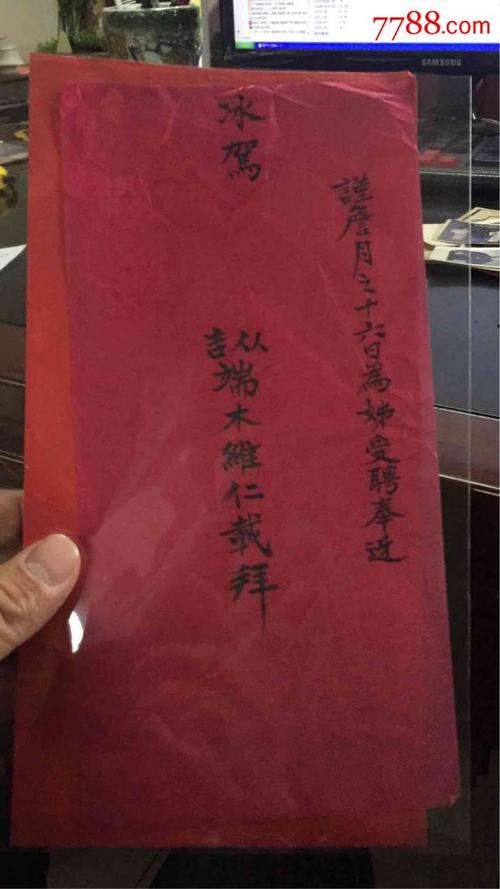 7788.com
SAMSUNG
謹詹月之十六日為姊受聘奉迓
冰駕
吉
端木維仁載拜